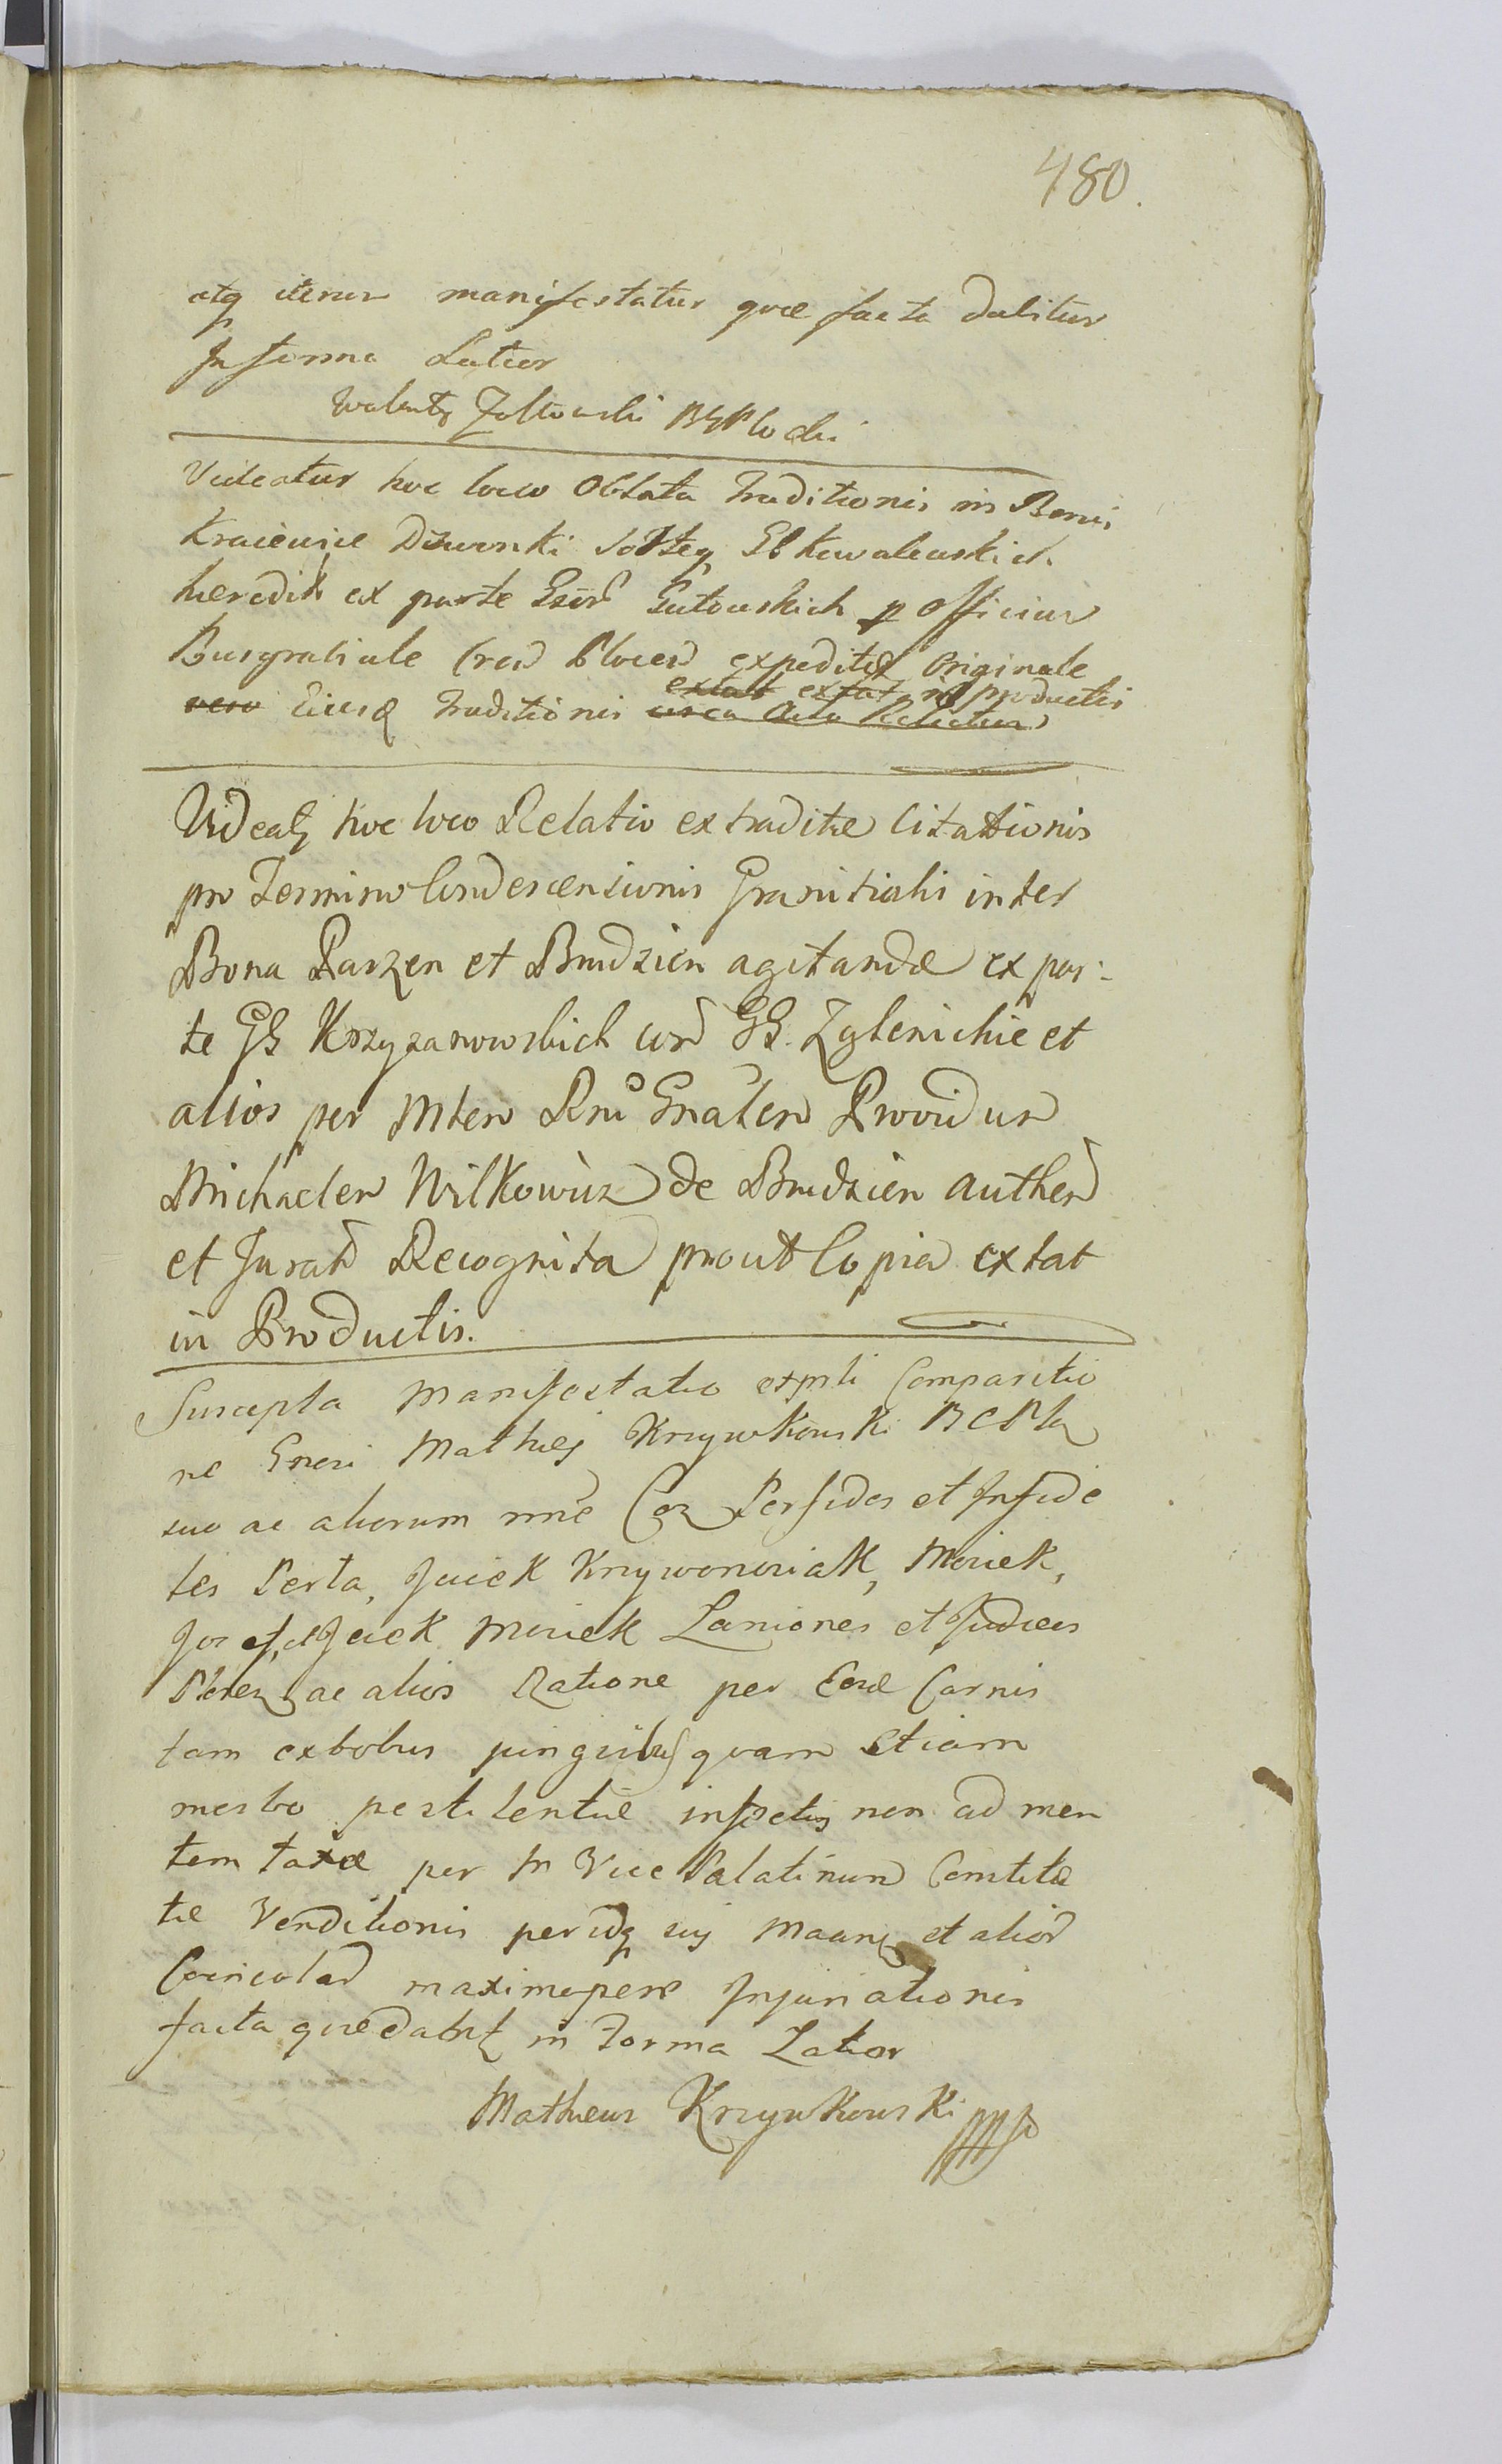 480.
atq iterum manifestatur quæ facta dabitur
In forma Latior
Walenty Zołtowski BGPlocki
Videatur hoc loco Oblata Traditionis in Bonis
Kraiewice Dzwonki GG Kowalewskich
heredit ex parte Gutowskich p Officium
Burgrabiale Plocen expedita Originale
extat extat in productis
vero Eiusd Traditionis circa Acta Relictum
Videatz hoc loco Relatio extraditæ Citationis
pro Termino Condescensionis Granitialis inter
Bona Parzen et Brudzien agitandæ ex par-
te GG Krzyzanowskich con GG. Zglenickie et
alios per Mtem Rni Gnalem Providum
Michaelem Wilkowicz de Brudzien authen
et Jurat Recognita prout Copia extat
in Productis.
Suscepta Manifestatio exprli Comparitio
ne Gnosi Mathiej Krzywkowski BCPla
suo ac aliorum nne Con Perfidos et Infide
les Perta, Jacek Krzywonosiak, Moriek,
Josef, et Jacek Moriek Laniones et Judæos
Plocen ac alios Ratione per Eosd Carnis
tam ex bobus pinguibus quam etiam
morbo pestilentiæ infectis non ad men
tem taxæ per M Vice Palatinum Constitu
tæ Venditionis peridq suj Maan et alior
Coincolar maximopere Injuriationis
facta quæ dabitz in Forma Latior
Matheus Krzywkowski mpp